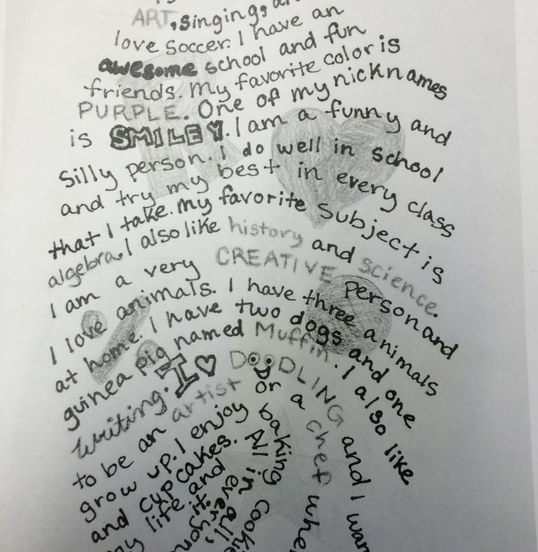 ART, singing,
love soccer. I have an
awesome school and fun
friends. My favorite color is
PURPLE. One of my nicknames
is SMILEY. I am a funny and
silly person. I do well in school
and try my best in every class
that I take. My favorite subject is
algebra. I also like history and science.
I am a very CREATIVE person and
I love animals. I have three animals
at home. I have two dogs and one
guinea pig named Muffin. I also like
writing. I ♥ DOODLING and I wan
to be an artist or a chef whe
grow up. I enjoy baking cookie
and cupcakes. All in all,
my life and